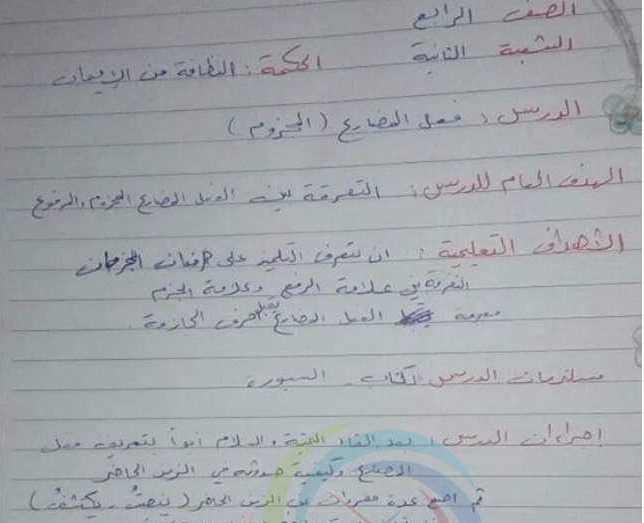 الصف الرابع
الشعبة الثانية الحكمة: النظافة من الإيمان
الدرس: فعل المضارع (المجزوم)
الهدف العام للدرس: التفرقة بين الفعل المضارع المجزوم والمرفوع
الأهداف التعليمية: ان يتعرف التلميذ على
التفرقة بين علامة الرفع وعلامة الجزم
معرفة الفعل المضارع قبل حرف الجازمة.
مستلزمات الدرس: الكتاب - السبورة
إجراءات الدرس: بعد القاء التحية والسلام أبدأ بتعريف فعل
المضارع وكيفية حدوثه في الزمن الحاضر
ثم اضع عدة مفردات عن الزمن الحاضر (ينصتُ - يكتشفُ)